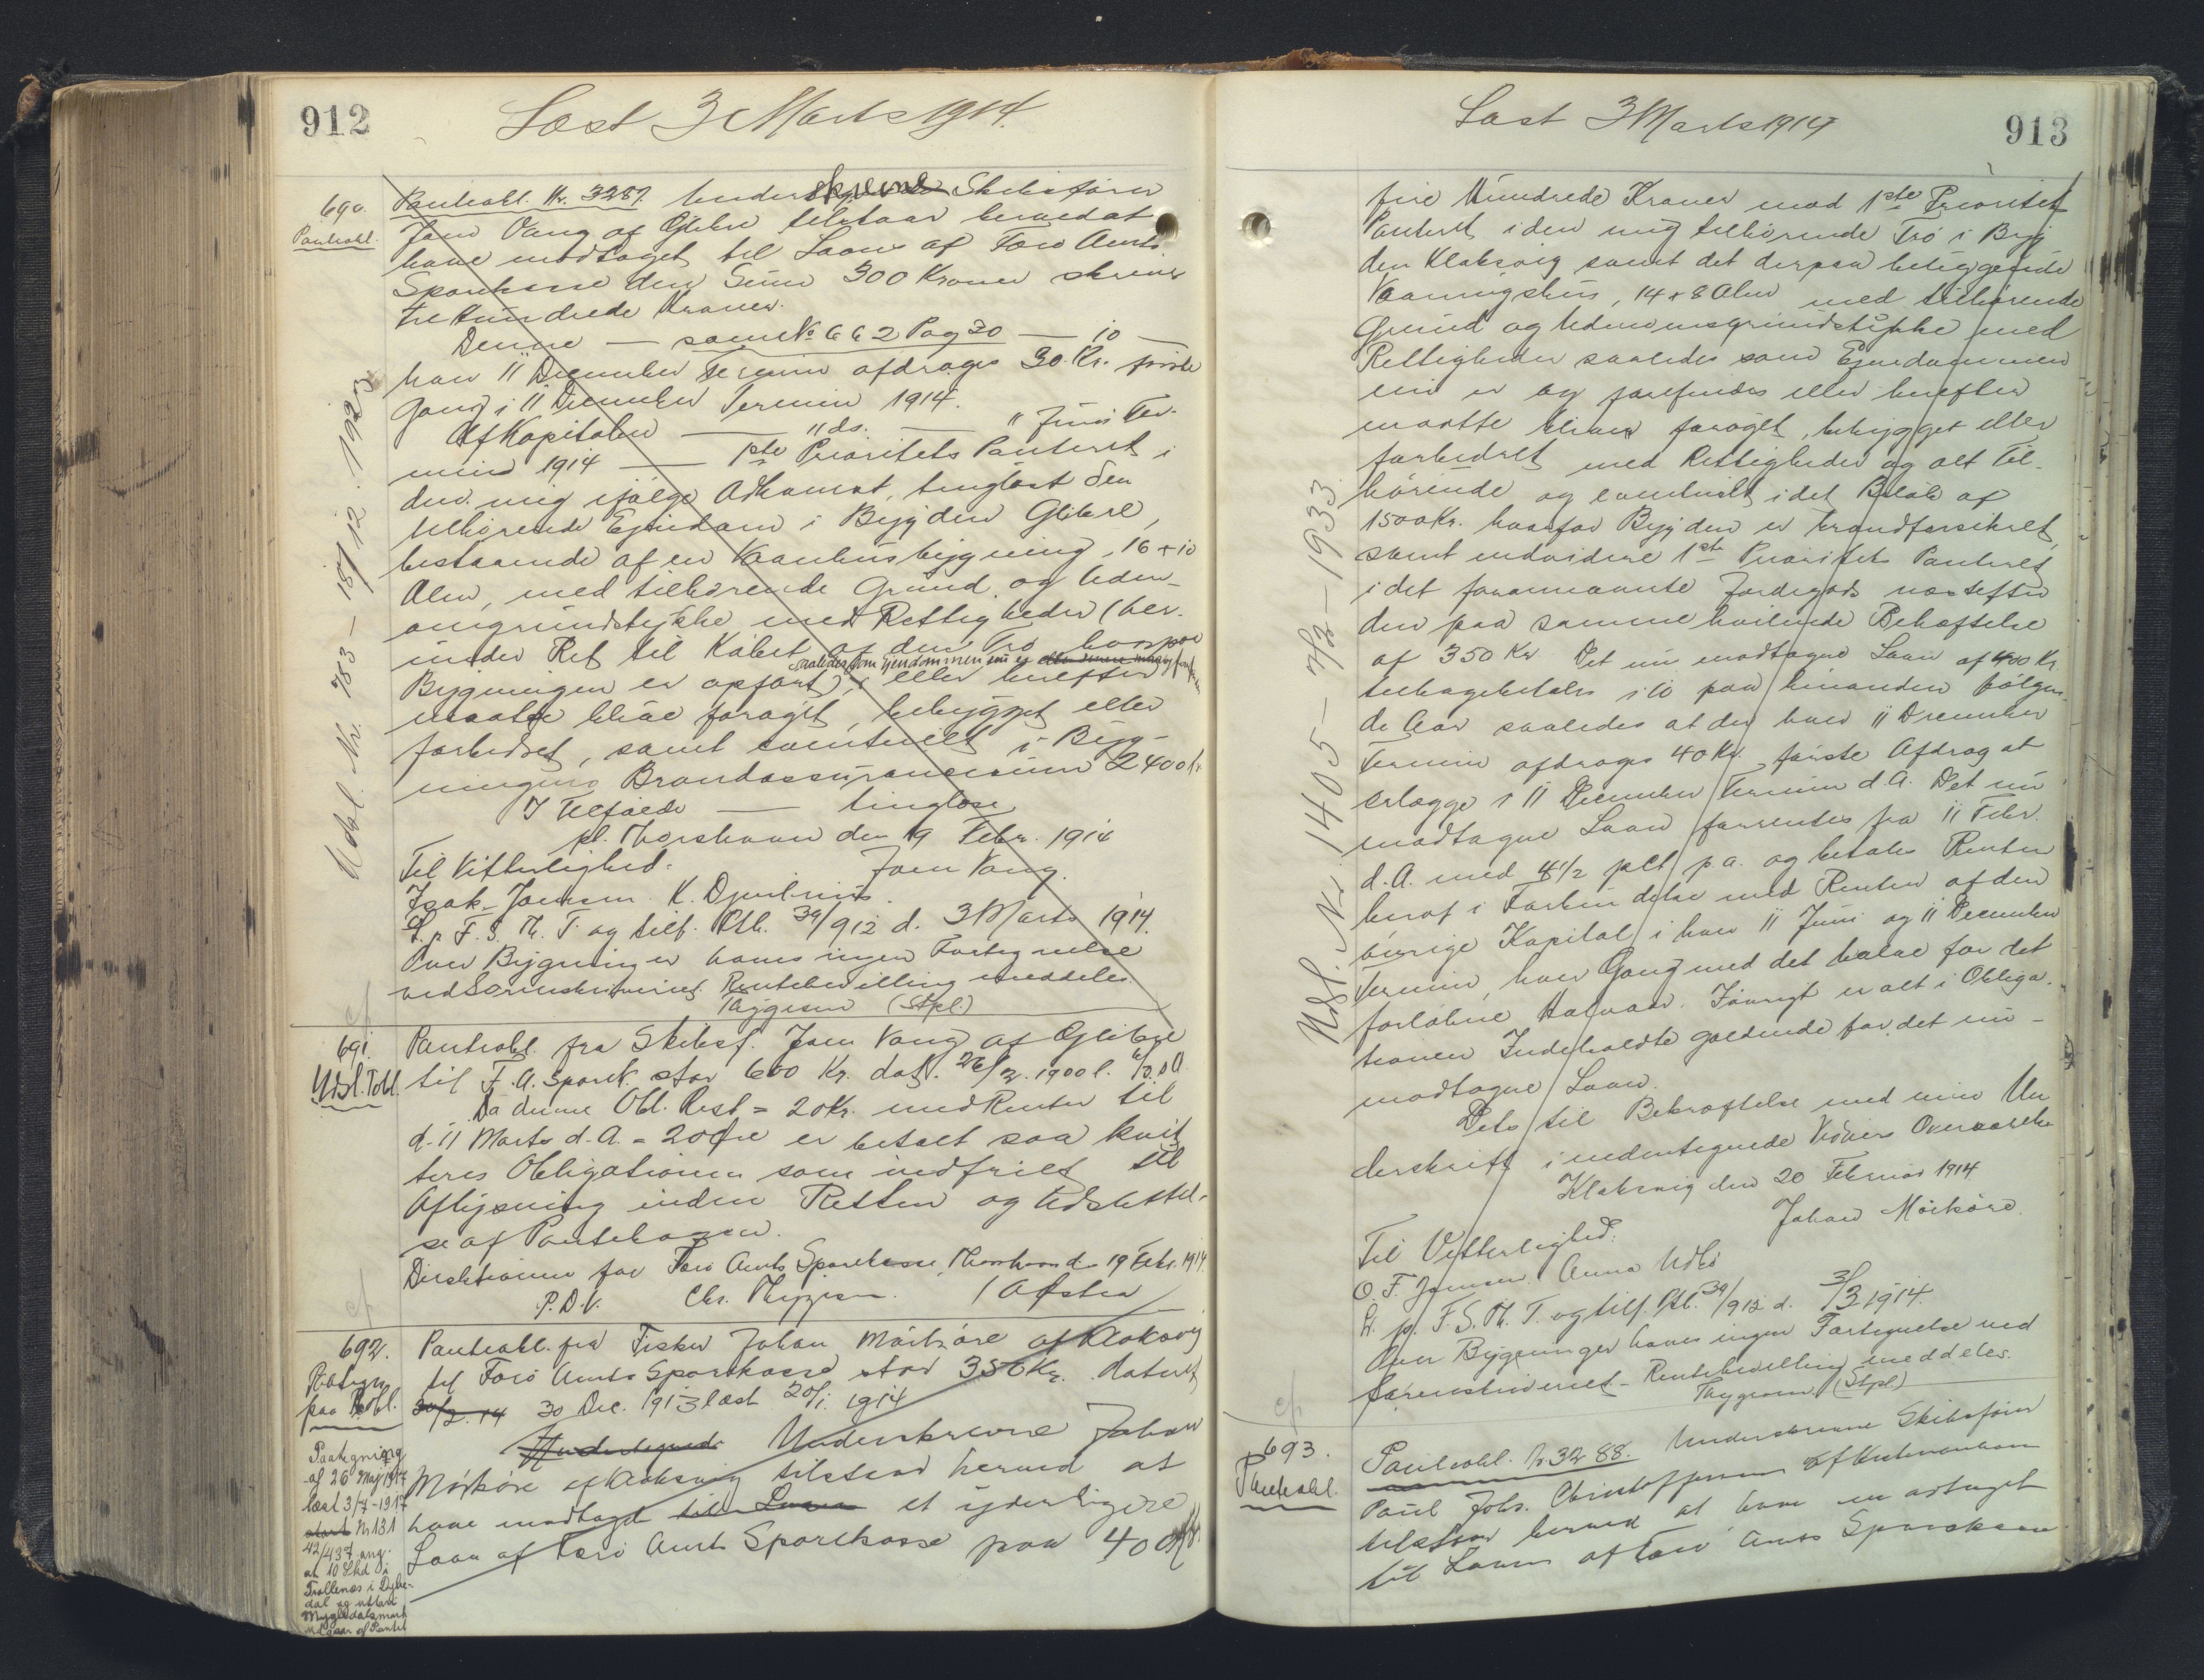 912
Læst 3 Marts 1914.
690.
Panteobl.
Panteobl. Nr. 3287. Underskrevne Skibsfører
Joen Vang af Glibre tilstaar herved at
have modtaget til Laans af Færø Amts
Sparekasse den Sum 300 Kroner skriver
tre hundrede Kroner.
Denne — som No 662 Pag 30 — 10 —
hver 11 December Termin afdrages 30 Kr. første
Gang i 11 December Termin 1914.
Af Kapitalen — "ds. — " Juni Ter-
min 1914 — 1ste Prioritets Panteret i
den mig ifølge Adkomst, tinglæst den
tilhørende Ejendom i Bygden Glibre,
bestaaende af en Vaanhusbygning, 16 + 10
Alen, med tilhørende Grund og Uden-
omsgrundstykke med Rettigheder (her-
under Ret til Købet af den Trø hvorpaa
saaledes som Ejendommen nu er
Bygningen er opført), eller herefter
maatte blive forøget, bebygget eller
forbedret, samt eventuelt i Byg-
ningens Brandassurancesum 2400 Kr
I Tilfælde — tinglæse
pt. Thorshavn den 19 Febr. 1914
Til Vitterlighed. Joen Vang.
Isak Joensen. K. Djurhuus.
L. p F. S. Th. T. og tilf. Ptb. 39/912 d. 3 Marts 1914.
Over Bygninger haves ingen Fortegnelse
ved Sorenskriveriet. Rentebevilling meddeles
Thygesen (Stpl.)
Udsl. Nr. 783 – 18/12. 1923
691.
Udsl. Pobl.
Panteobl. fra Skibsf. Joen Vang af Glibre
til F. A. Spark. stor 600 Kr. dat. 26/2. 1900 l. 6/3. d A
Da denne Obl. Rest = 20 Kr. med Renter til
d. 11 Marts d. A. = 20 Øre er betalt saa kvit-
teres Obligationen som indfriet til
Aflysning inden Retten og Udslettel-
se af Pantebogen.
Direktionen for Færø Amts Sparekasse, Thorshavn d. 19 Febr. 1914.
P. D. V. Chr. Thygesen. / O Østen
692.
Paategn.
paa Pobl.
Panteobl. fra Fisker Johan Mørkøre af Klaksvig
til Færø Amts Sparekasse stor 350 Kr. dateret
30/2. 14 30 Dec. 1913 læst 20/1. 1914
Undertegnede Underskrevne Johan
Mørkøre af Klaksvig tilstaar herved at
have modtaget til Laans et yderligere
Laan af Færø Amts Sparekasse paa 400 Kr.
Paategning
af 26 Maj 1917
læst 3/7-1917
Nr 131
42/437 ang.
at 10 Skd i
Trøllenæs i Dybe-
dal og udtari
Mygledalsmark
udgaar af Pantet
913
Læst 3 Marts 1914
fire Hundrede Kroner mod 1ste Prioritets
Panteret i den mig tilhørende Trø i Byg-
den Klaksvig samt det derpaa beliggende
Vaaningshus, 14 + 8 Alen med tilhørende
Grund og Udenomsgrundstykke med
Rettigheder saaledes som Ejendommen
nu er og forefindes eller herefter
maatte blive forøget, bebygget eller
forbedret med Rettigheder og alt Til-
hørende og eventuelt i det Beløb af
1500 Kr. hvorfor Bygden er brandforsikret,
samt endvidere 1ste Prioritets Panteret
i det forannævnte Jordegods næstefter
den paa samme hvilende Behæftelse
af 350 Kr Det nu modtagne Laan af 400 Kr.
tilbagebetales i 10 paa hinanden følgen-
de Aar saaledes at der hver 11 December
Termin afdrages 40 Kr. første Afdrag at
erlægge i 11 December Termin d. A. Det nu
modtagne Laan forrentes fra 11 Febr.
d. A. med 4 1/2 pCt p a. og betales Renten
heraf i Forbindelse med Renten af den
øvrige Kapital i hver 11 Juni og 11 December
Termin, hver Gang med det halve for det
forløbne Halvaar. Iøvrigt er alt i Obliga-
tionen Indeholdte gældende for det nu-
modtagne Laan.
Dets til Bekræftelse med min Un-
derskrift i nedentegnede Vidners Overværelse
Klaksvig den 20 Februar 1914
Johan Mörköre.
Til Vitterlighed.
O. F. Joensen. Anna
L. p. F. S. Th. T. og tilf. Ptb. 39/912 d. 3/3 1914.
Over Bygninger haves ingen Fortegnelse ved
Sorenskriveriet. Rentebevilling meddeles.
Thygesen (Stpl)
Udsl. Nr. 1405 – 7/2 – 1933
693.
Panteobl.
Panteobl. Nr 3288. Underskrevne Skibsfører
Paul Johs. Christoffersen af Vestmanhavn
tilstaar herved at have modtaget
til Laans af Færø Amts Sparekasse